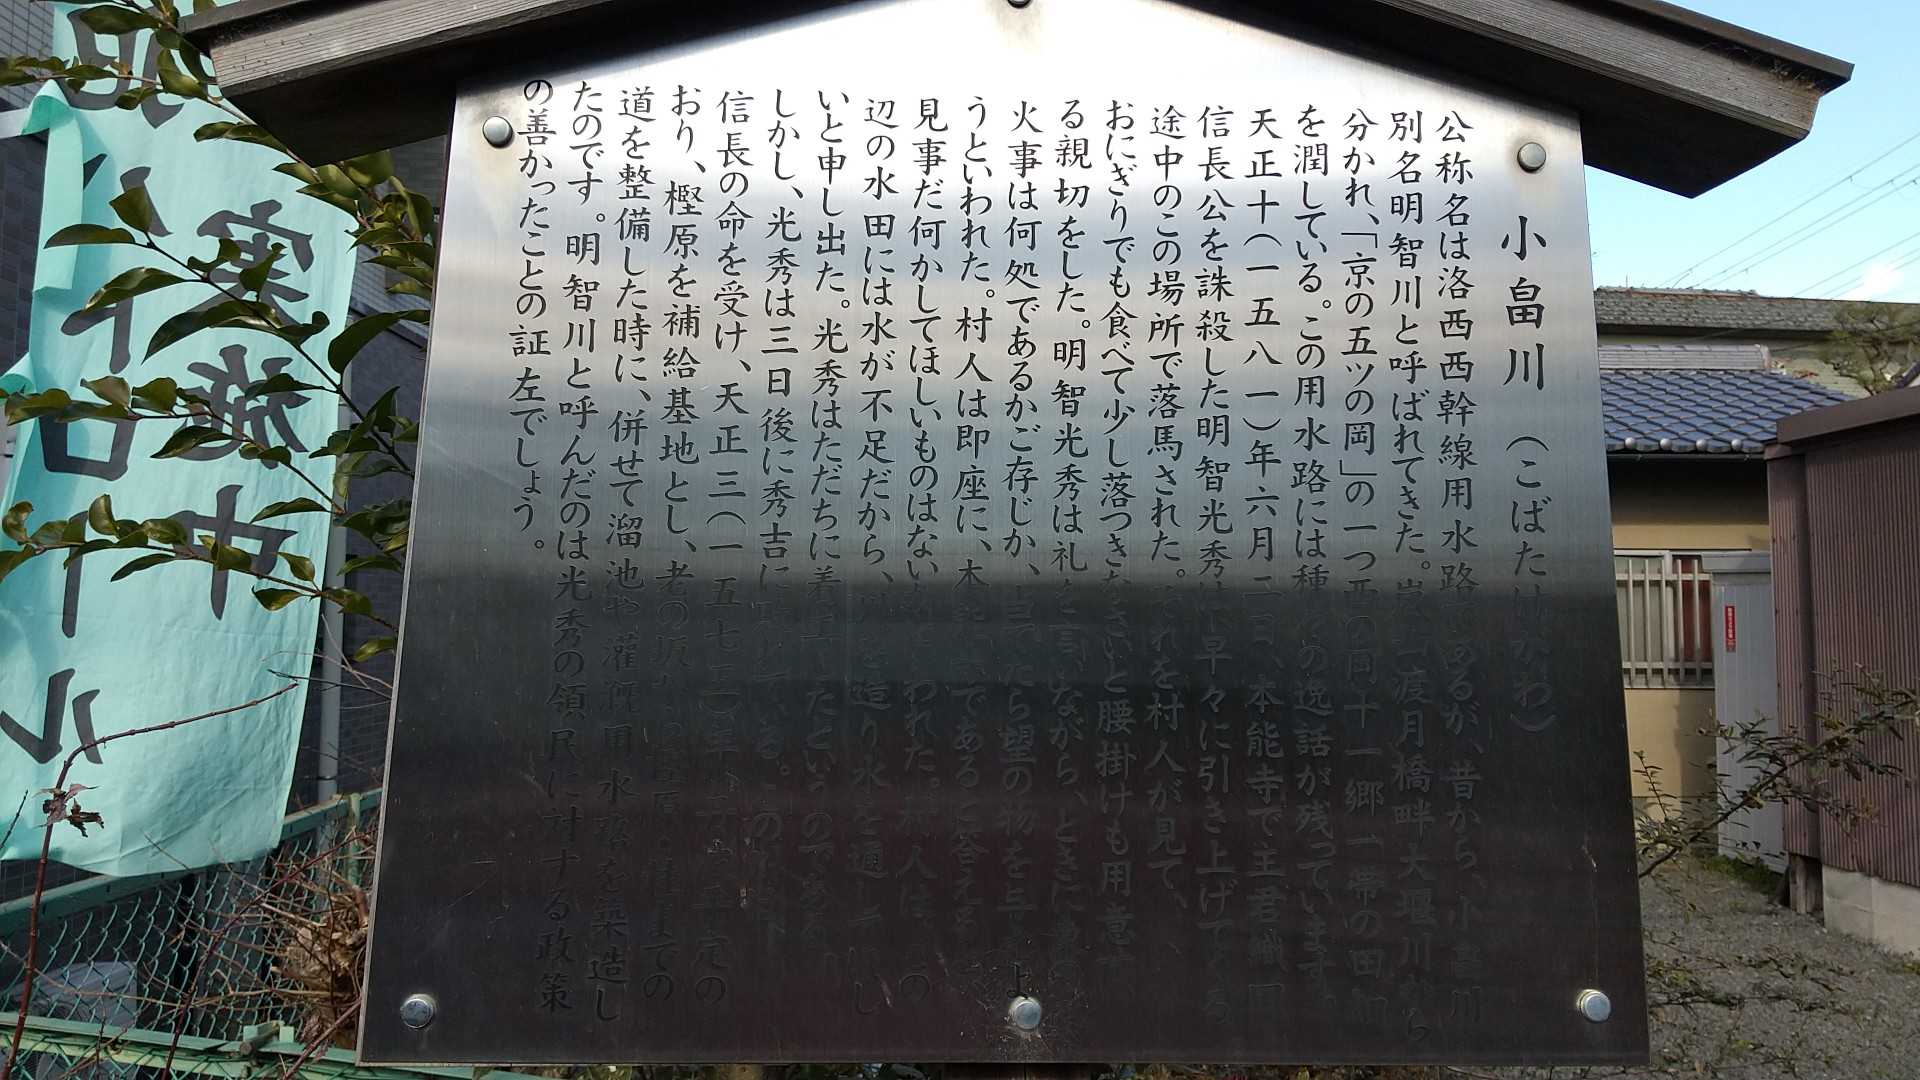 小畠川 （こばたけがわ）
公称名は洛西西幹線用水路であるが、昔から、小畠川
別名明智川と呼ばれてきた。嵐山渡月橋畔大堰川から
分かれ、「京の五ツの岡」の一つ西の岡十一郷一帯の田畑
を潤している。この用水路には種々の逸話が残っています。
天正十（一五八一）年六月二日、本能寺で主君織田
信長公を誅殺した明智光秀は早々に引き上げてくる
途中のこの場所で落馬された。それを村人が見て、
おにぎりでも食べて少し落つきなさいと腰掛けも用意す
る親切をした。明智光秀は礼を言いながら、ときに
火事は何処であるかご存じか、当てたら望の物を与えよ
うといわれた。村人は即座に、本能寺であると答える
見事だ何かしてほしいものはないかといわれた。村人は、この
辺の水田には水が不足だから、川を造り水を通してほし
いと申し出た。光秀はただちに着工したというのである。
しかし、光秀は三日後に秀吉に
信長の命を受け、天正三（一五七五）年
おり、樫原を補給基地とし、老の坂から
道を整備した時に、併せて溜池や灌漑用水路を築造し
たのです。明智川と呼んだのは光秀の領民に対する政策
の善かったことの証左でしょう。
実施中
ロール